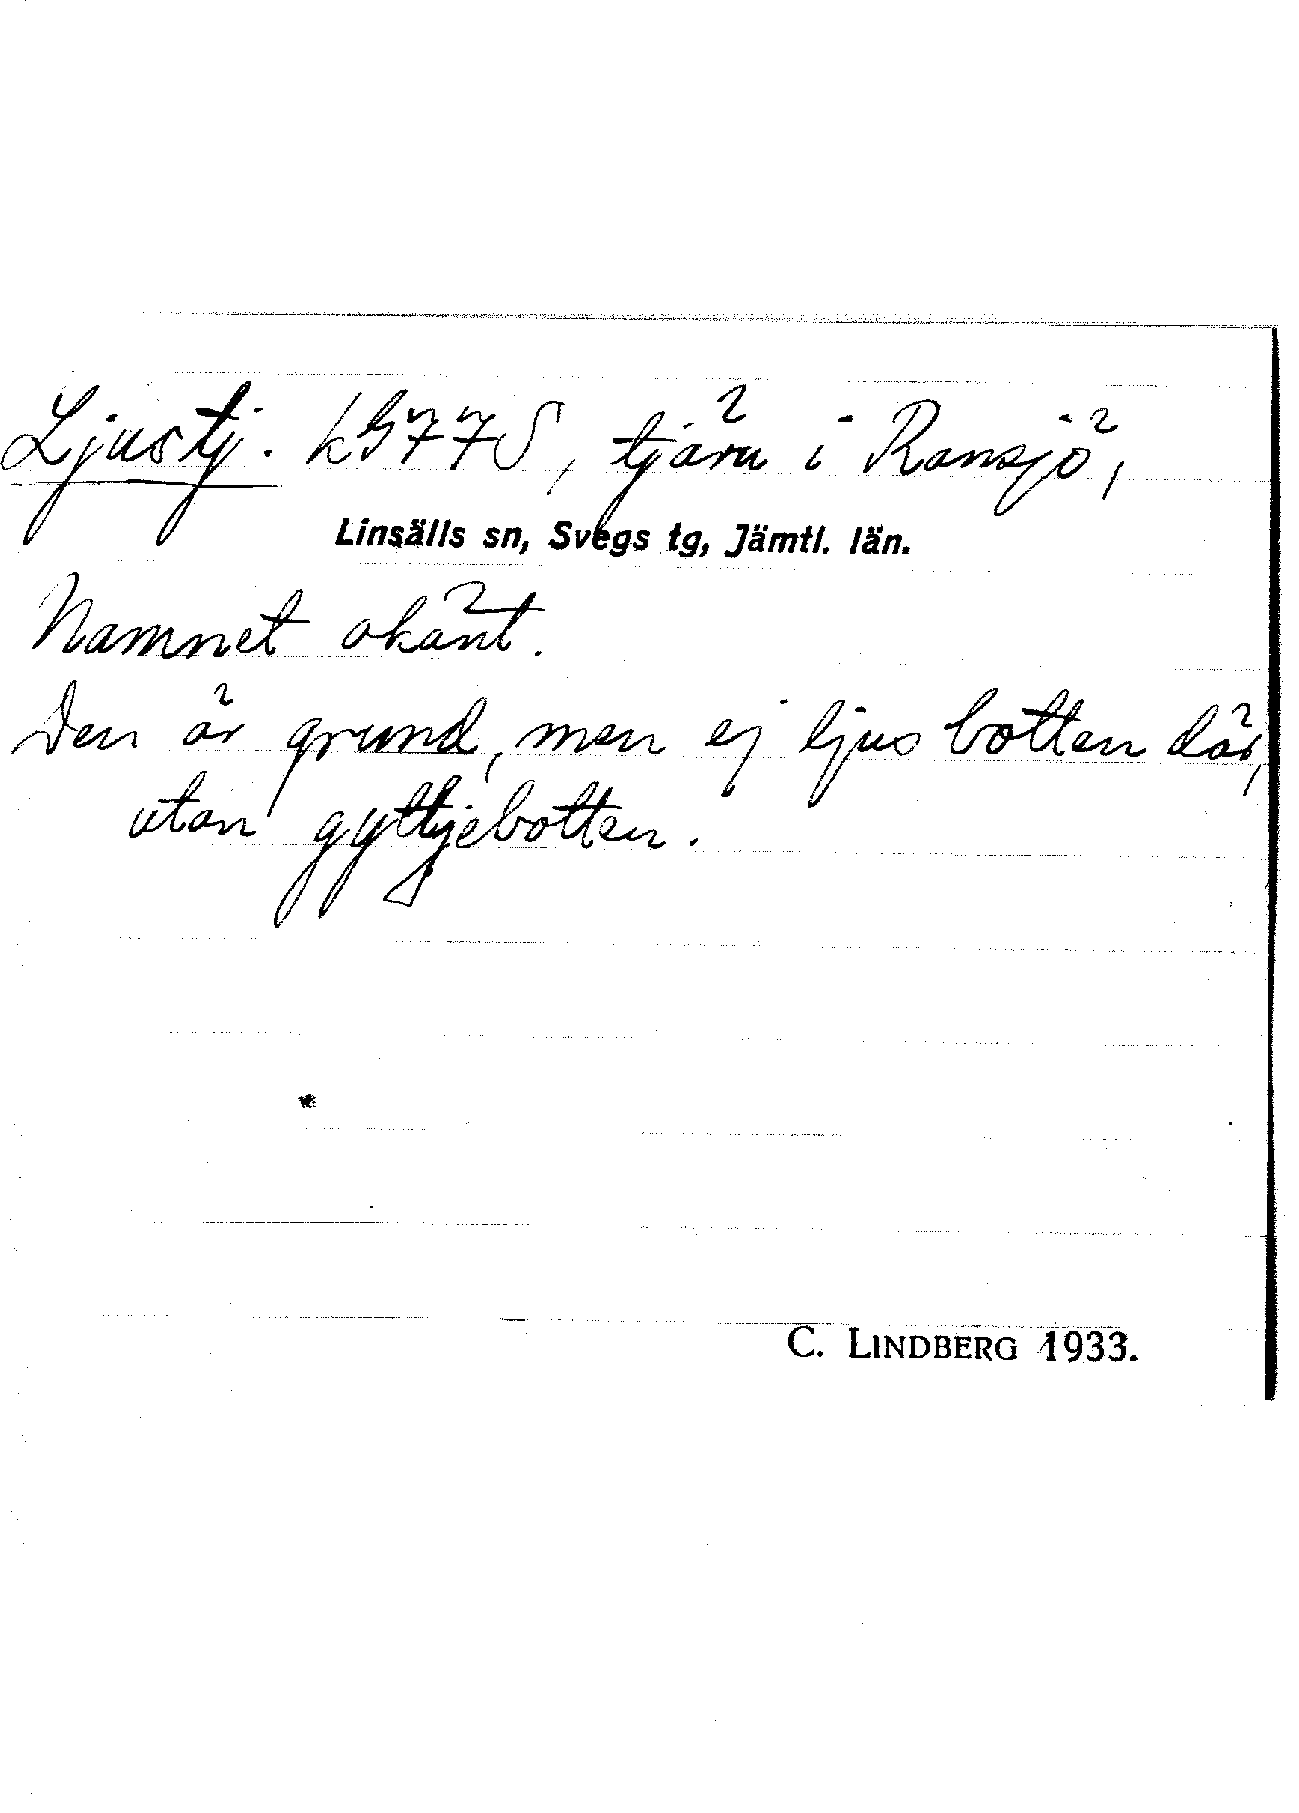 Ljustj. kG77S, tjärn i Ransjö,
Linsälls sn, Svegs tg, Jämtl. län.
Namnet okänt.
Den är grund, men ej ljus botten där,
utan gyttjebotten.
C. LINDBERG 1933.